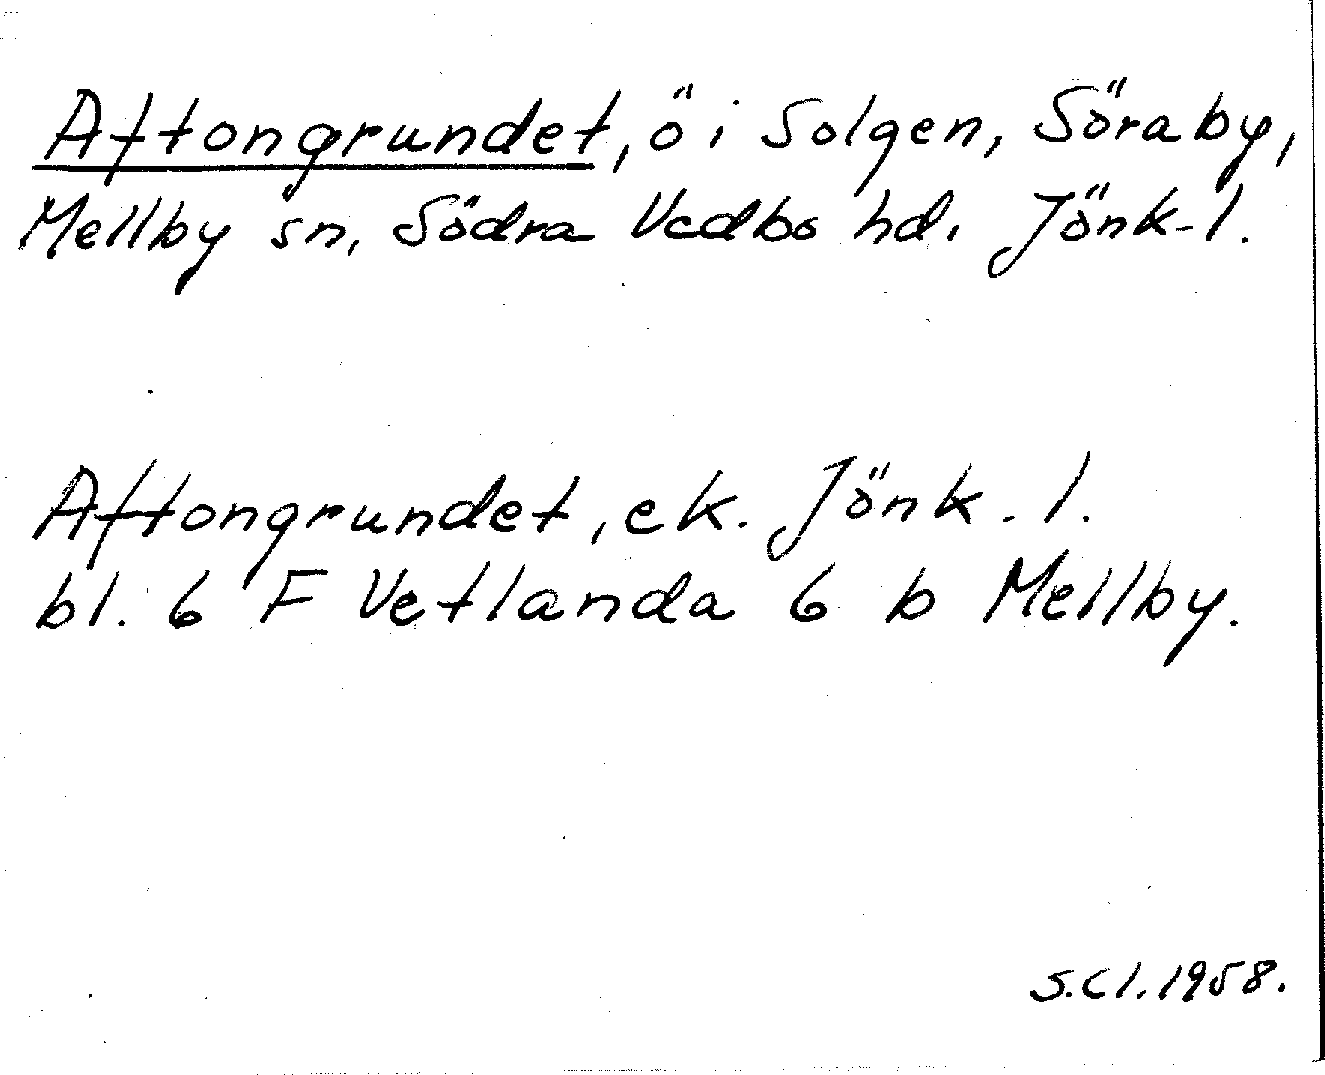 Aftongrundet, ö i Solgen, Söraby,
Mellby sn, Södra Vedbo hd. Jönk-l.
Aftongrundet, ek. Jönk. l.
bl. 6 F Vetlanda 6 b Mellby.
S.Cl.1958.